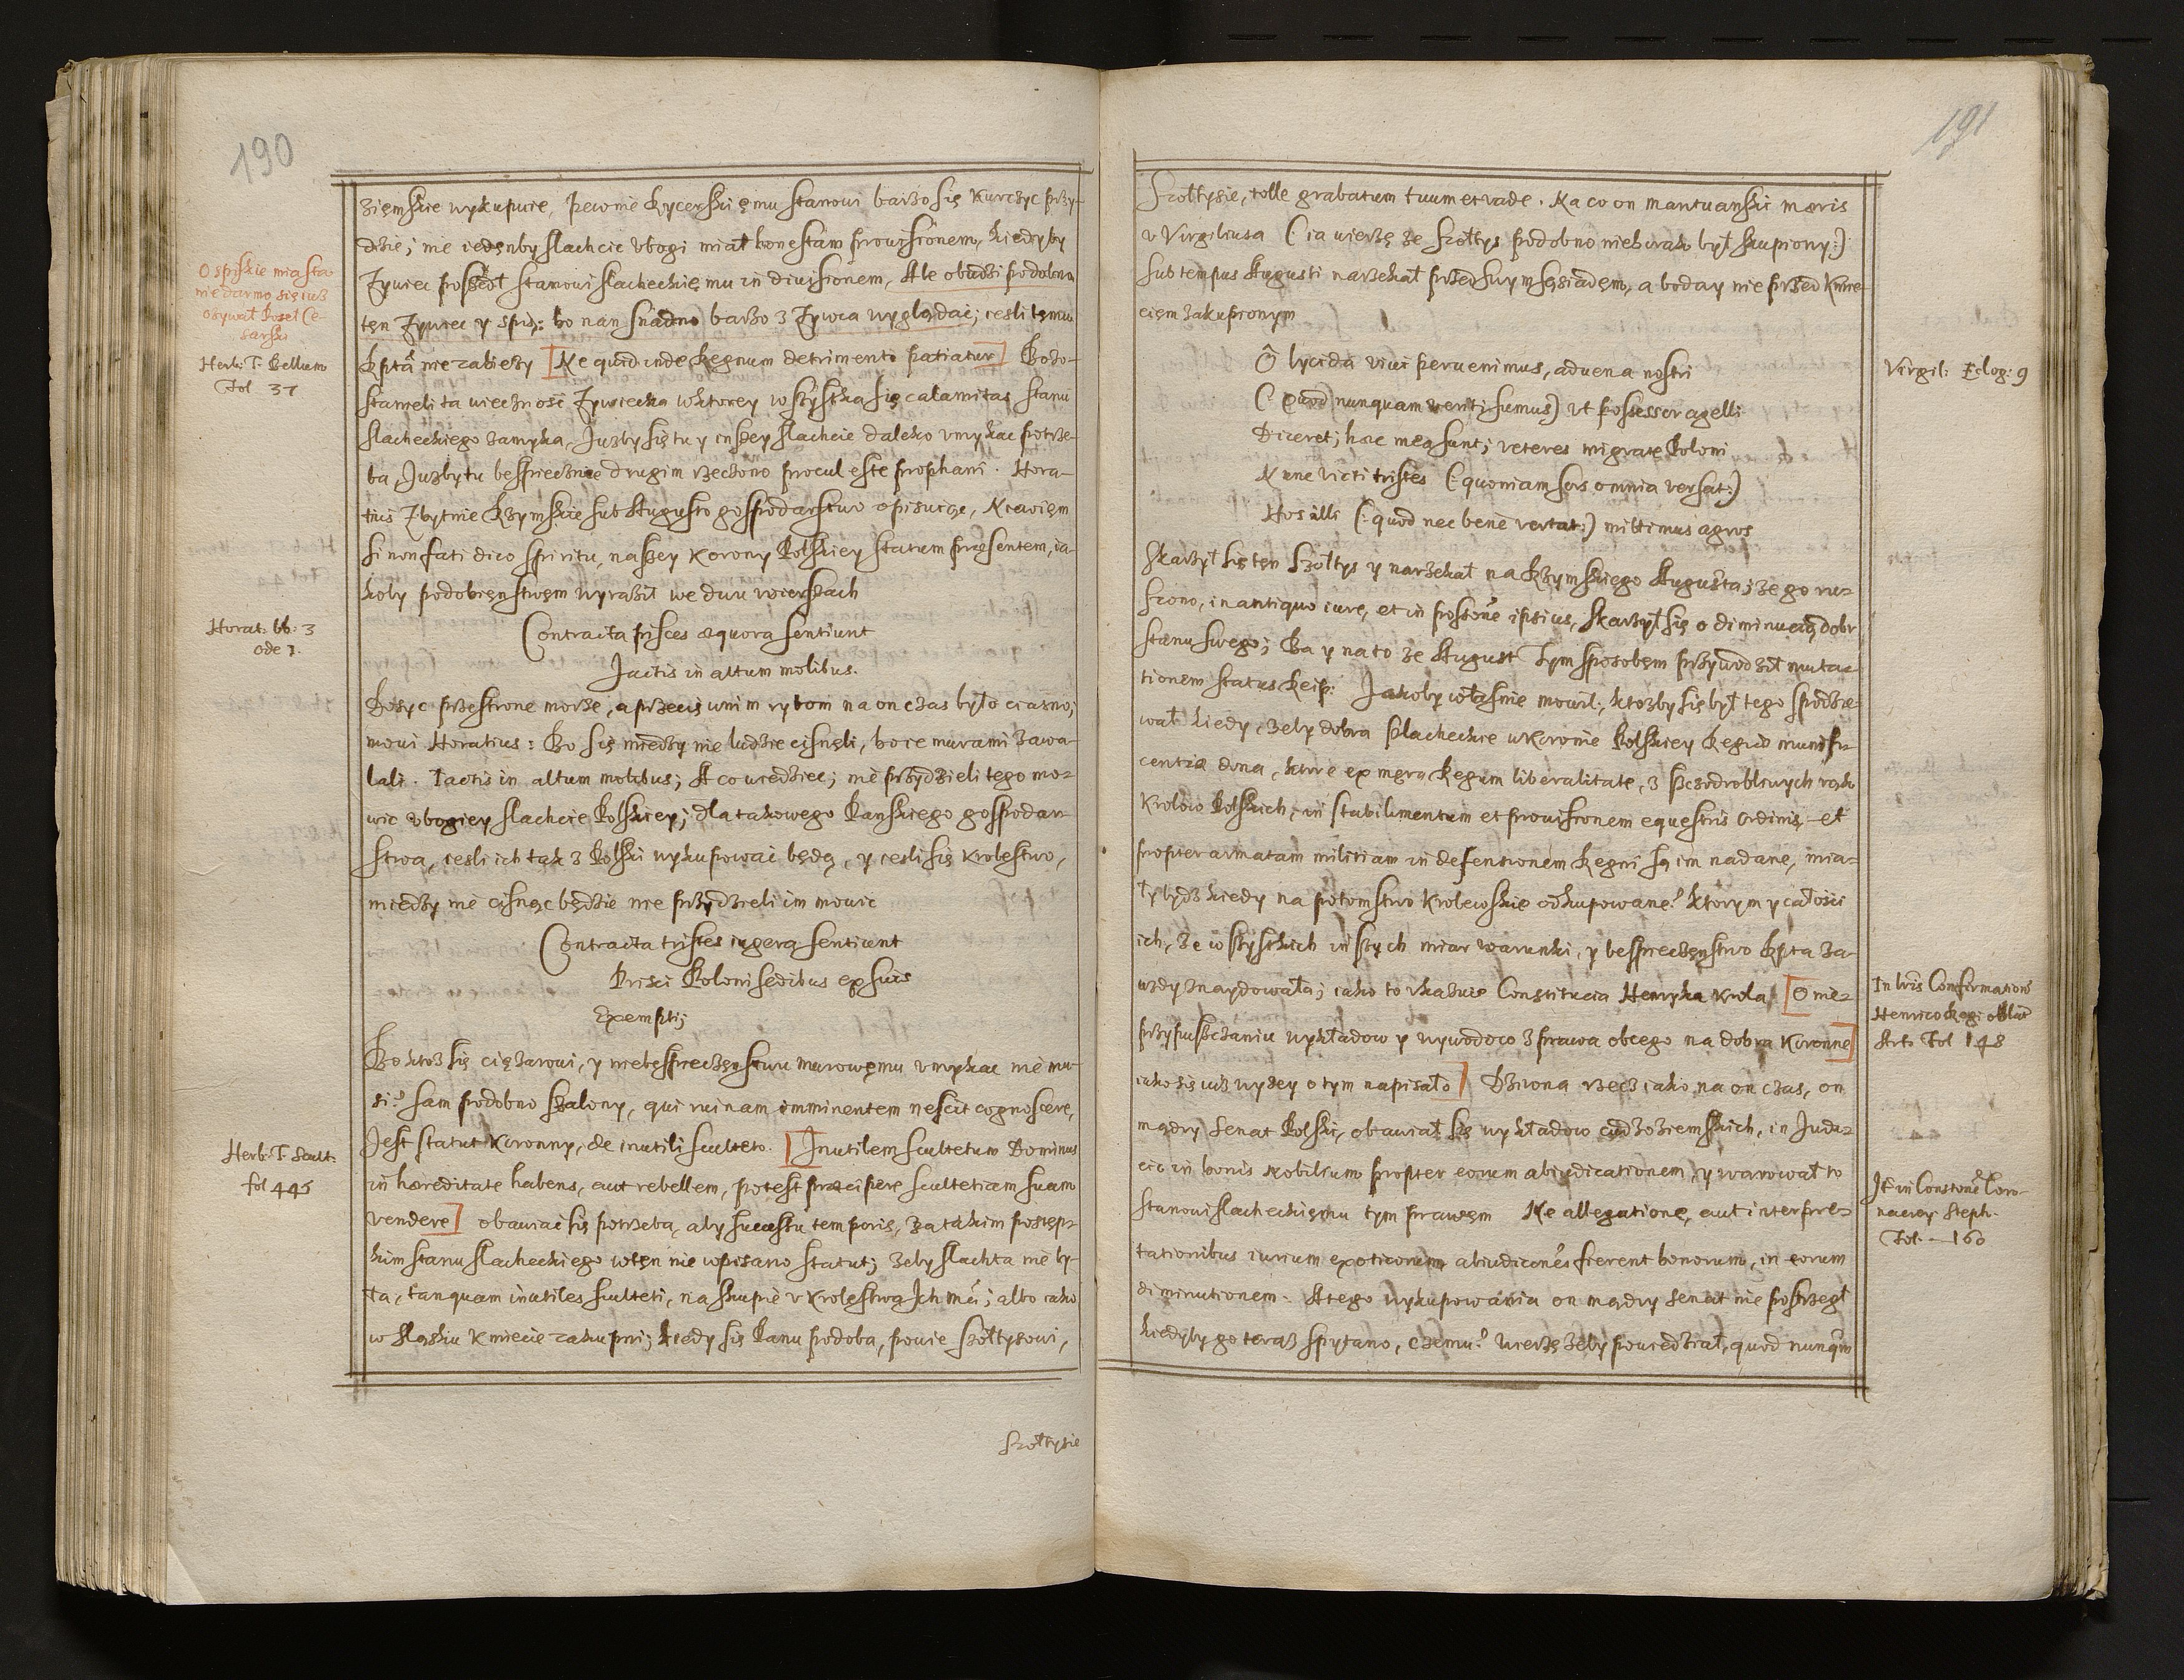 190
zięmskie wykupuie, pewnie Rycerskięmu stanowi barzo się kurczyc przy-
dzie; nie iedęnby slachcic vbogi miał honestam prouisionem, kiedyby
Zywiec poszedł stanowi slacheckięmu in diuisionem, Ale obudzi podobno
tęn Zywiec y spisz: bo nan snadno barzo z Zywca wyglądac; iesli tęmu
Rptā nie zabieży [Ne quid inde Regnum detrimenti patiatur] Bo zo-
stanieli ta wiecznosc Zywiecka w ktorey wszystka się calamitas stanu
slacheckiego zamyka, Juzby się tu y inszey slachcie daleko vmykac potrze-
ba, Juzby tu bespiecznie drugim rzeczono procul este prophani. Hora-
tius Zbytnie Rzymskie sub Augusto gospodarstwo opisuiąc, Niewięm
si non fatidico spiritu, naszey Korony Polskiey statum pręsentem, ia-
koby podobięnstwęm wyraził we dwu wierszach
Contracta pisces æquora sentiunt
Jactis in altum molibus.
Dosyc przestrone morze, a przecię w nim rybom na on czas było ciasno;
mowi Horatius: Bo się między nie ludzie cisnęli, bo ie murami zawa-
lali. Iactis in altum molibus; A co wiedziec; nie przydzieli tego mo-
wic vbogiey slachcie Polskiey; dla takowego Panskiego gospodar-
stwa, iesli ich tak z Polski wykupowac będą, y iesli się krolestwo,
między nie cisnąc będzie nie przydzieli im mowic
Contracta tristes iugera sentiunt
Prisci Coloni sedibus ex suis
Exempti;
Bo ktoz się ciężarowi, y niebespieczęnstwu murowęmu vmykac nie mu-
si? sam podobno szalony, qui ruinam imminentem nescit cognoscere,
Jest statut Koronny, de inutili sculteto. [Inutilem scultetum Dominus
in hæreditate habens, aut rebellem, potest præcipere scultetiam suam
vendere] obawiac się potrzeba, aby successu temporis, za takim postęp-
kim stanu slacheckiego w tęn nie wpisano statut; zeby slachta nie by-
ła, tanquam inutiles sculteti, na skupie v Krolęstwa Ich mci; albo iako
w sląsku kmiecie zakupni; kiedy się Panu podoba, powie szołtysowi,
szołtysie
O spiskie miasta
niedarmo się iuz
ozywał Poseł Ce-
sarski
Herb: T. Bellum
Fol 37
Horat: lib: 3
ode 1.
Herb: T. Scult:
fol 445
191
szołtysie, tolle grabatum tuum et vade. Na co on mantuanski mæris
v Virgiliusa (: ia wierzę ze szołtys podobno niekrako był skupiony:)
sub tempus Augusti narzekał przed swym sąsiadęm, a boday nie przed kmie-
cięm zakupionym
Ô lycida viui peruenimus, aduena nostri
(: Quod nunquam veriti sumus) vt possessor agelli
Diceret; hæc mea sunt; veteres migrate Coloni
Nunc victi tristes (: quoniam sors omnia versat:)
Hos illi (: quod nec benè vertat:) mittimus ągros
skarzył się tęn szołtys y narzekał na Rzymskiego Augusta; ze go ru-
szono, in antiquo iure, et in possone ipsius, skarzył się o diminucią dobr
stanu swego; Ba y na to ze August tym sposobęm przywodził muta-
tionem status Reip: Jakoby własnie mowił, ktozby się był tego spodzie-
wał kiedy, zeby dobra slacheckie w Koronie Polskiey Regiæ munifi-
centiæ dona, ktore ex mera Regum liberalitate, z szczodrobliwych rąk
Krolow Polskich, in stabilimentum et prouisionem equestris ordinis, et
propter armatam militiam in defensionem Regni są im nadane, mia-
ły bydz kiedy na potomstwo Krolewskie odkupowane? ktorym y całosci
ich, ze wszystkich inszych miar warunki, y bespieczęnstwo Rpta za-
wzdy znaydowała; iako to vkazuie Constitucia Henryka Krola [O nie-
przypuszczaniu wykładow y wywodow z prawa obcego na dobra Koronne]
iako się iuz wyzey o tym napisało] Dziwna rzecz iako, na on czas, on
mądry Senat Polski, obawiał się wykładow cudzoziemskich, in Judi-
cio in bonis nobilium propter eorum abiudicationem, y warował to
stanowi slacheckięmu tym prawęm Ne allegatione, aut interpre-
tationibus iurium exoticorum abiudicones fierent bonorum, in eorum
diminutionem. A tego wykupowania on mądry Senat nie postrzegł
kiedyby go teraz spytano, czemu? wierzę zeby powiedział, quod nunqm
Virgil: Eclog: 9
In lris Confirmations
Henrico Regi oblat
Art. Fol 148
Jt in Constone Coro-
naciey Steph.
Fol. — 160